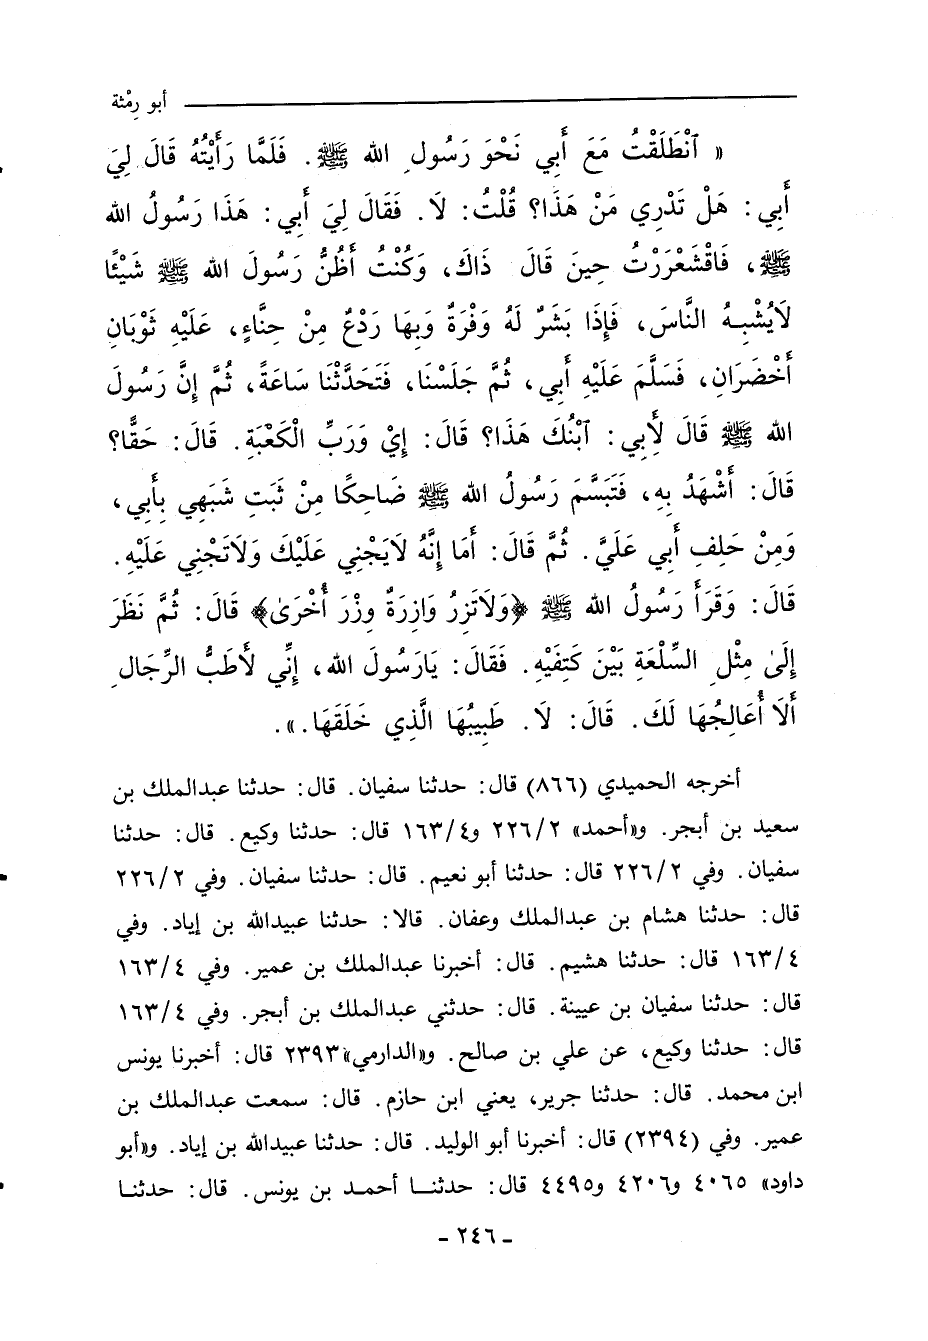 أبو رِمْثة
« ٱنْطَلَقْتُ مَعَ أَبِي نَحْوَ رَسُولِ الله ﷺ. فَلَمَّا رَأَيْتُهُ قَالَ لِيَ
أَبِي: هَلْ تَدْرِي مَنْ هَذَا؟ قُلْتُ: لَا. فَقَالَ لِيَ أَبِي: هَذَا رَسُولُ الله
ﷺ، فَاقْشَعْرَرْتُ حِينَ قَالَ ذَاكَ، وَكُنْتُ أَظُنُّ رَسُولَ الله ﷺ شَيْئًا
لَايُشْبِهُ النَّاسَ، فَإِذَا بَشَرٌ لَهُ وَفْرَةٌ وَبِهَا رَدْعٌ مِنْ حِنَّاءٍ، عَلَيْهِ ثَوْبَانِ
أَخْضَرَانِ، فَسَلَّمَ عَلَيْهِ أَبِي، ثُمَّ جَلَسْنَا، فَتَحَدَّثْنَا سَاعَةً، ثُمَّ إِنَّ رَسُولَ
الله ﷺ قَالَ لأَبِي: ٱبْنُكَ هَذَا؟ قَالَ: إِيْ وَرَبِّ الْكَعْبَةِ. قَالَ: حَقًّا؟
قَالَ: أَشْهَدُ بِهِ، فَتَبَسَّمَ رَسُولُ الله ﷺ ضَاحِكًا مِنْ ثَبَتِ شَبَهِي بِأَبِي،
وَمِنْ حَلِفِ أَبِي عَلَيَّ. ثُمَّ قَالَ: أَمَا إِنَّهُ لَايَجْنِي عَلَيْكَ وَلَاتَجْنِي عَلَيْهِ.
قَالَ: وَقَرَأَ رَسُولُ الله ﷺ ﴿وَلَاتَزِرُ وَازِرَةٌ وِزْرَ أُخْرَىٰ﴾ قَالَ: ثُمَّ نَظَرَ
إِلَىٰ مِثْلِ السِّلْعَةِ بَيْنَ كَتِفَيْهِ. فَقَالَ: يَارَسُولَ الله، إِنِّي لأَطَبُّ الرِّجَالِ
أَلَا أُعَالِجُهَا لَكَ. قَالَ: لَا. طَبِيبُهَا الَّذِي خَلَقَهَا.».
أخرجه الحميدي (٨٦٦) قال: حدثنا سفيان. قال: حدثنا عبدالملك بن
سعيد بن أبجر. و«أحمد» ٢٢٦/٢ و١٦٣/٤ قال: حدثنا وكيع. قال: حدثنا
سفيان. وفي ٢٢٦/٢ قال: حدثنا أبو نعيم. قال: حدثنا سفيان. وفي ٢٢٦/٢
قال: حدثنا هشام بن عبدالملك وعفان. قالا: حدثنا عبيدالله بن إياد. وفي
١٦٣/٤ قال: حدثنا هشيم. قال: أخبرنا عبدالملك بن عمير. وفي ١٦٣/٤
قال: حدثنا سفيان بن عيينة. قال: حدثني عبدالملك بن أبجر. وفي ١٦٣/٤
قال: حدثنا وكيع، عن علي بن صالح. و«الدارمي»٢٣٩٣ قال: أخبرنا يونس
ابن محمد. قال: حدثنا جرير، يعني ابن حازم. قال: سمعت عبدالملك بن
عمير. وفي (٢٣٩٤) قال: أخبرنا أبو الوليد. قال: حدثنا عبيدالله بن إياد. و«أبو
داود» ٤٠٦٥ و٤٢٠٦ و٤٤٩٥ قال: حدثنا أحمد بن يونس. قال: حدثنا
- ٢٤٦ -